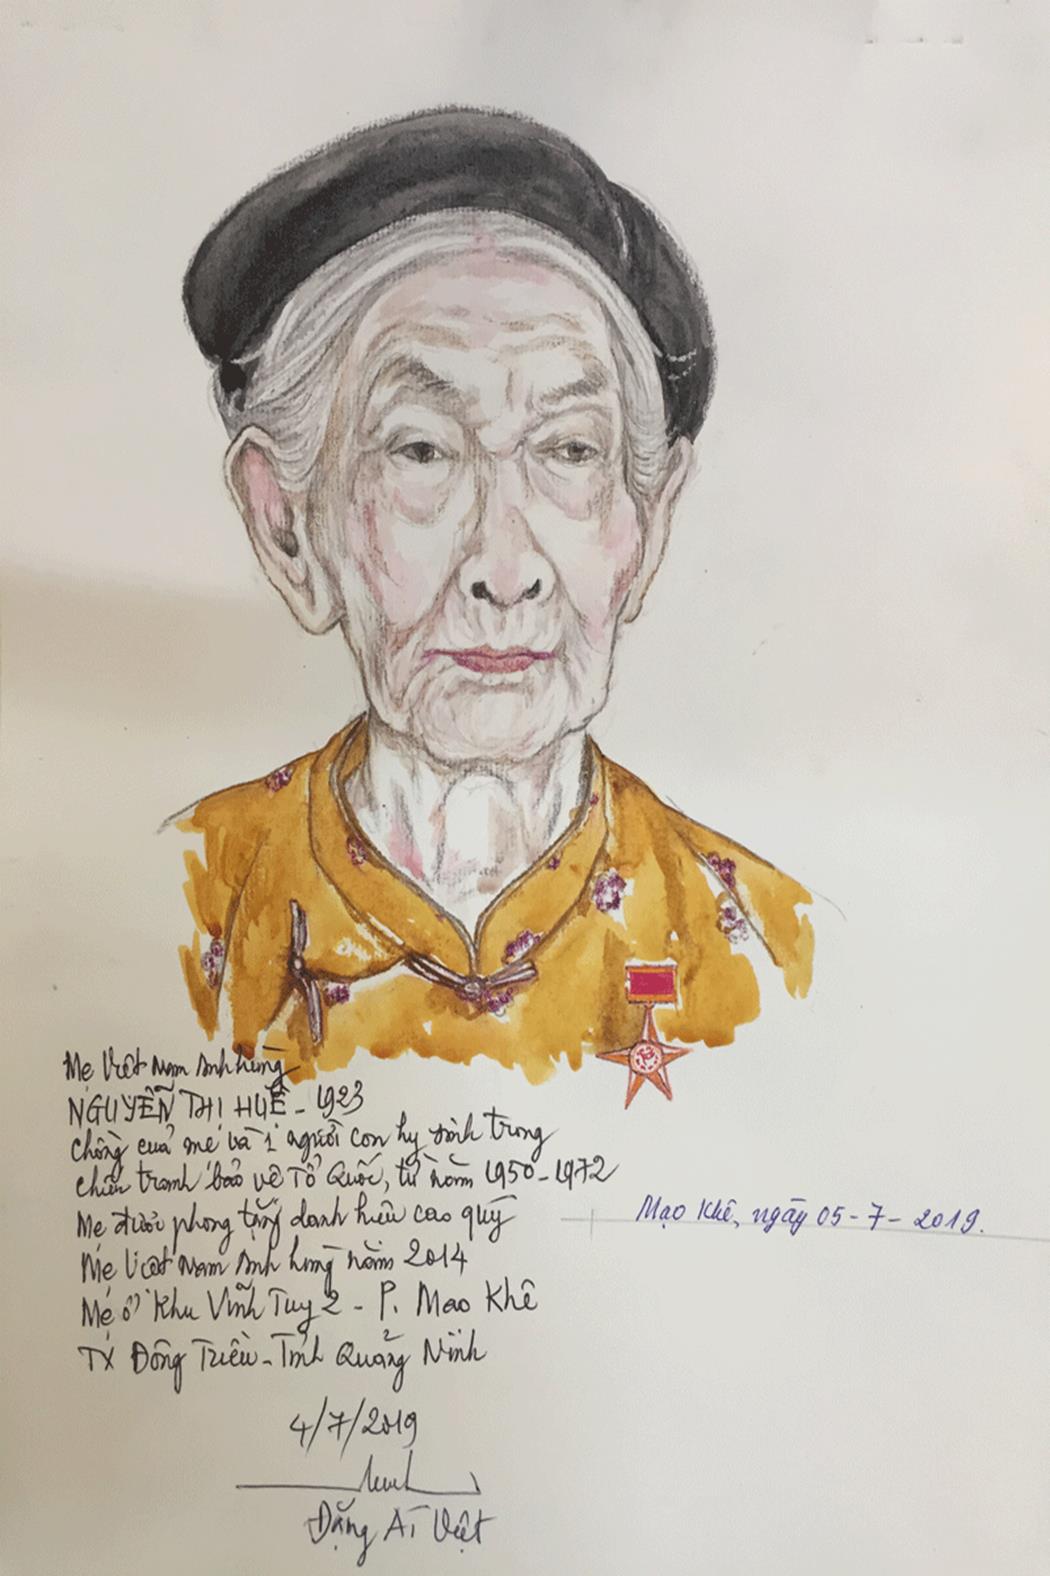 Mẹ Việt Nam Anh hùng
NGUYỄN THỊ HUỀ - 1923
Chồng của mẹ và 1 người con hy sinh trong
chiến tranh bảo vệ Tổ Quốc, từ năm 1950-1972
Mẹ được phong tặng danh hiệu cao quý
Mẹ Việt Nam Anh hùng năm 2014
Mẹ ở Khu Vĩnh Tuy 2 - P. Mao Khê
TX Đông Triều - Tỉnh Quảng Ninh
Mạo Khê, ngày 05-7-2019.
4/7/2019
Đặng Ái Việt